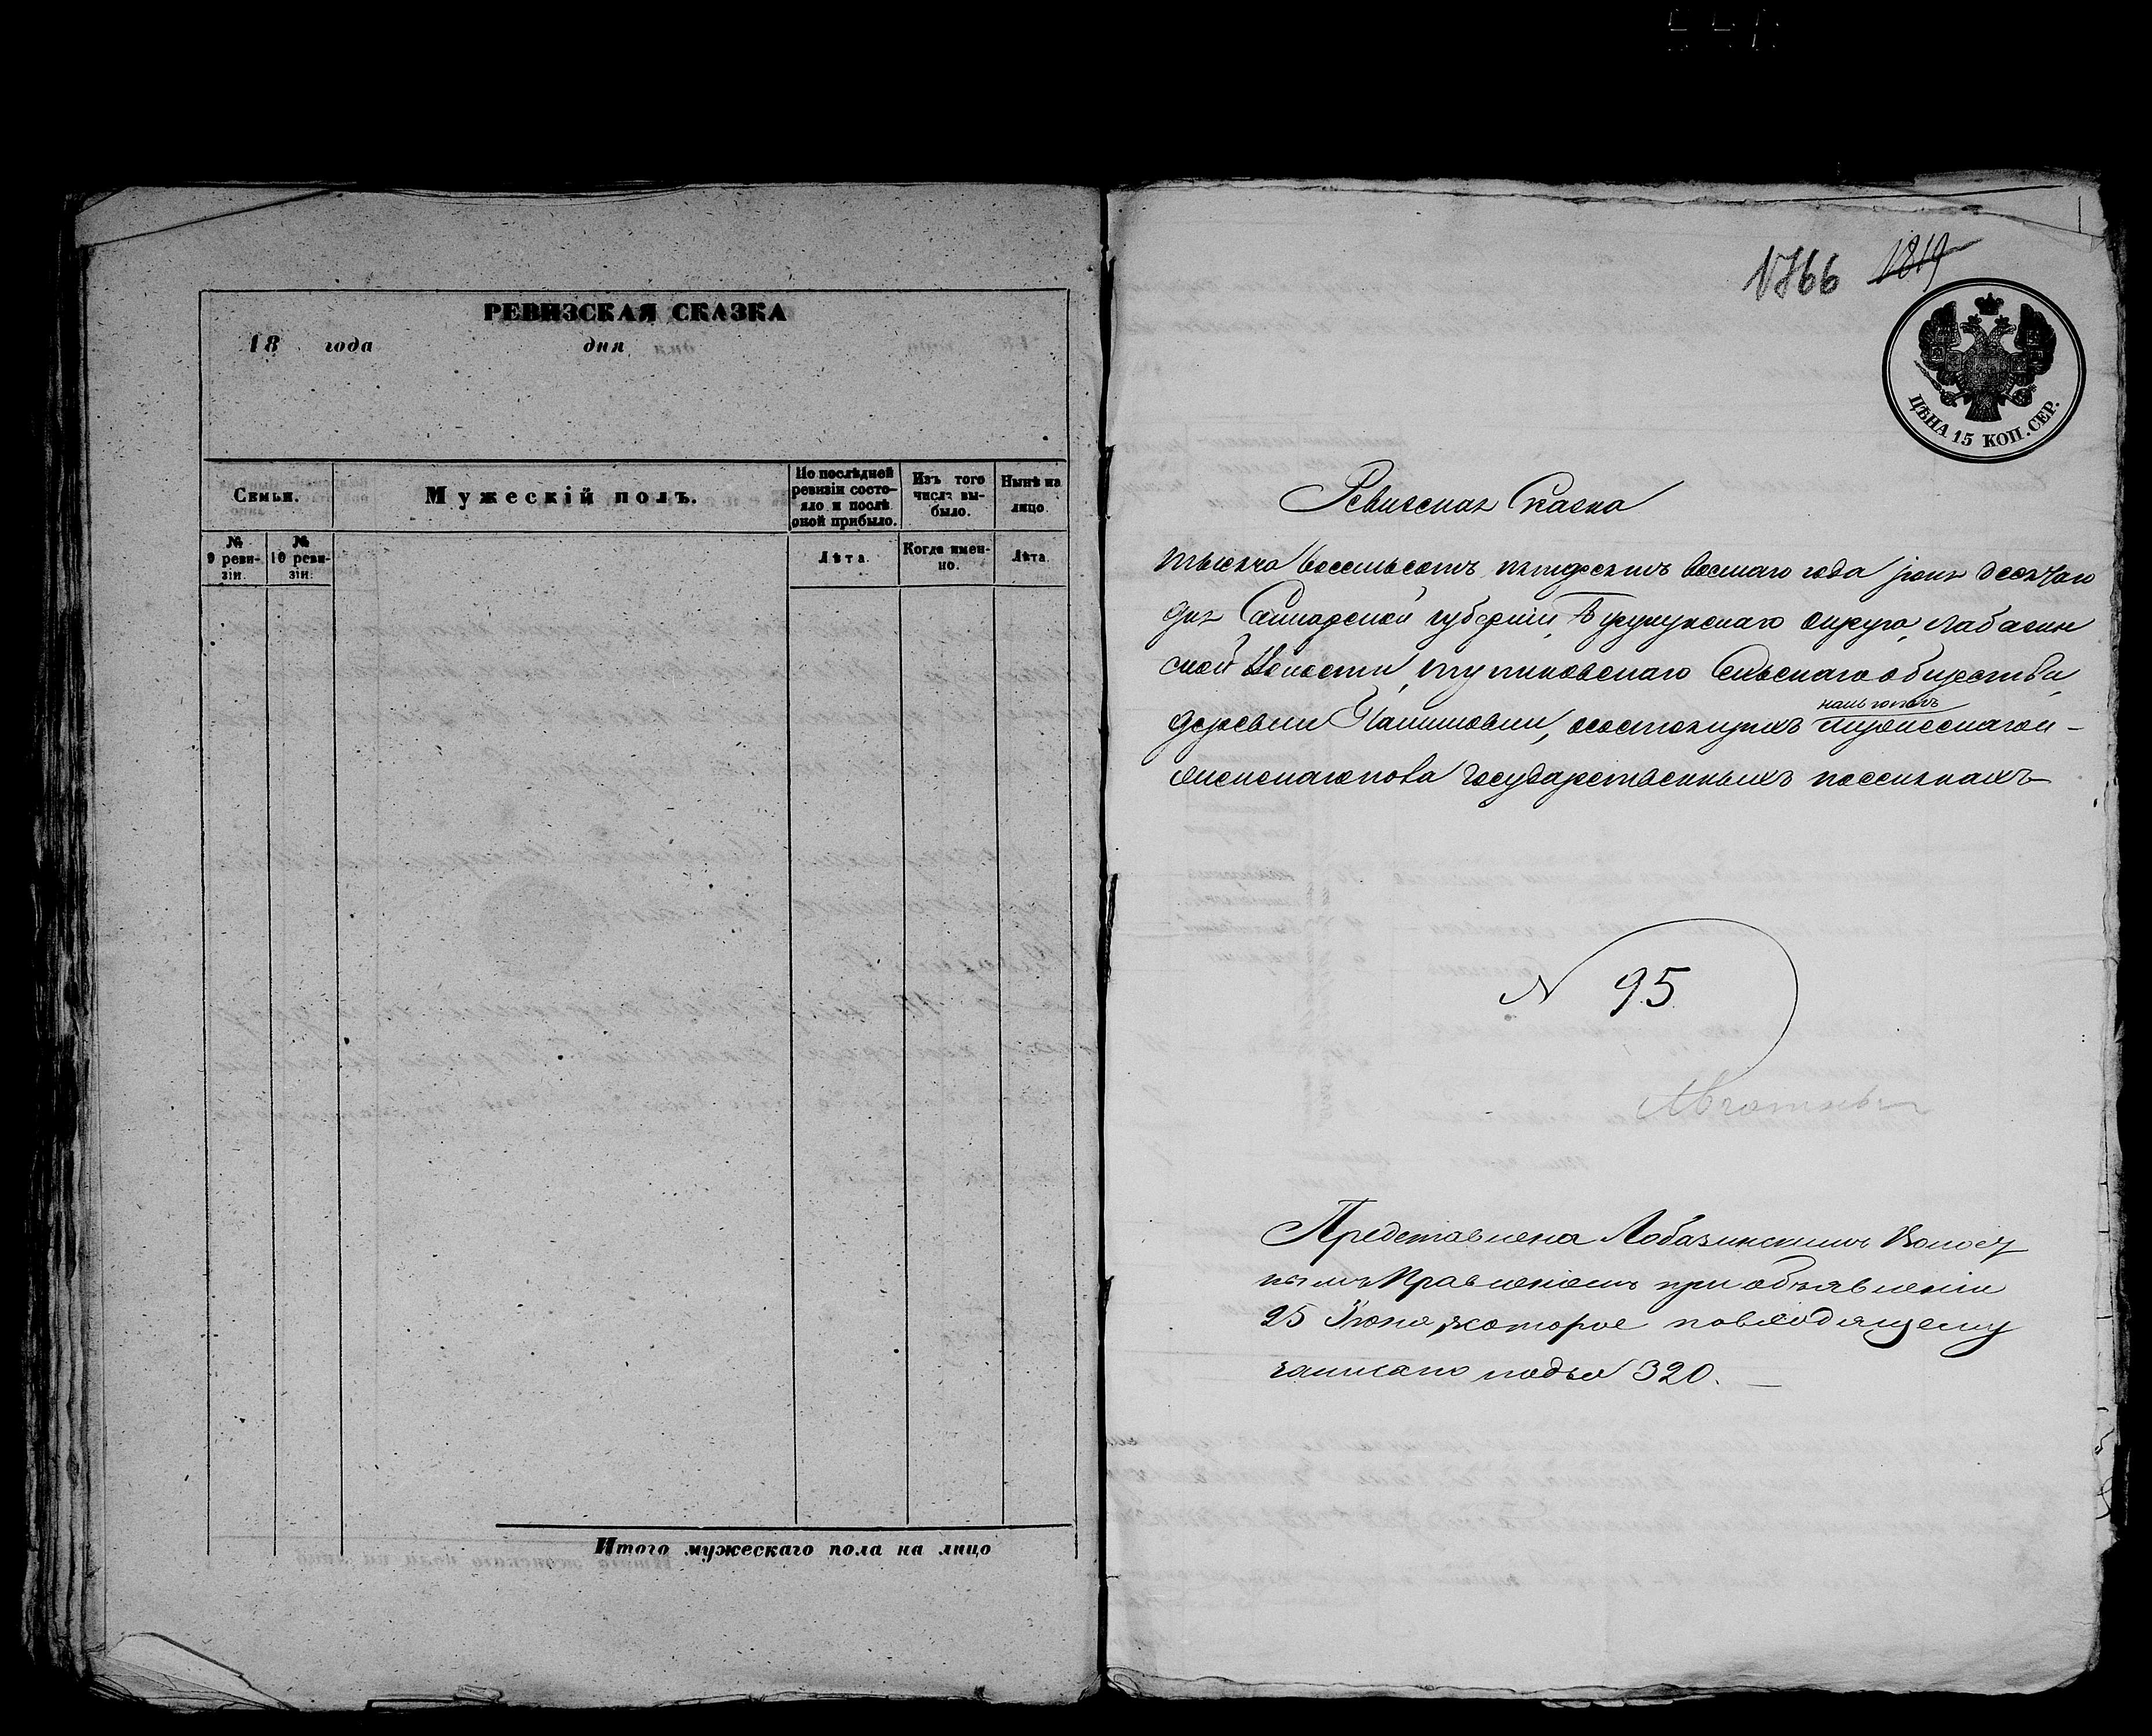 РЕВИЗСКАЯ СКАЗКА
18 года дня
Семьи.
Мужескій полъ.
По послѣдней ревизіи состояло и послѣ оной прибыло.
Изъ того числа выбыло.
Нынѣ на лицо.
№ 9 ревизіи.
№ 10 ревизіи.
Лѣта.
Когда именно.
Лѣта.
Итого мужескаго пола на лицо
1766 1819
ЦѢНА 15 КОП. СЕР.
Ревизская Сказка
тысяча восемьсотъ пятдесятъ восмаго года іюня десятаго
дня Самарской губерніи, Бузулукскаго округа, Лабазин
ской Волости, сельскаго общества,
деревни состоящихъ мужескаго и
женскаго пола Государственныхъ поселянахъ
N 95
Представлена Лобазинскимъ Волост
нымъ Правленіемъ при объявленіи
25 Іюня, которое повходящему
записано подъ № 320. —